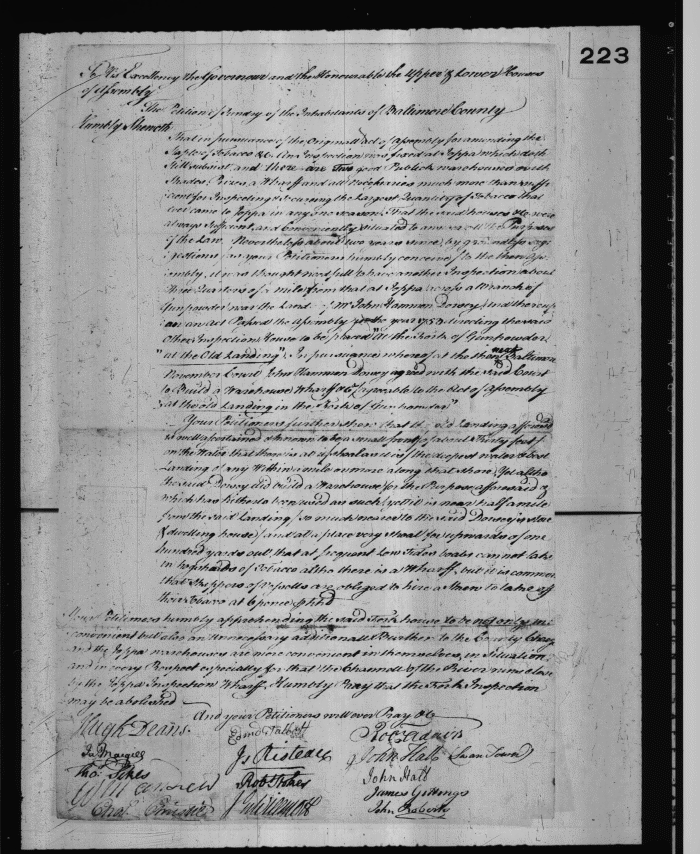 223
To His Excellency the Governour and the Honourable the Upper & Lower Houses
of Assembly
The Petition of Sundry of the Inhabitants of Baltimore County
Humbly Sheweth
That in pursuance of the Original Act of Assembly for amending the
Staple of Tobacco &c an Inspection was fixed at Joppa which doth
still subsist, and there are Two good Publick warehouses with
Shades, Prizes, a Wharff and all necessaries much more than suffi
cient for Inspecting & securing the Largest Quantity of Tobacco that
ever came to Joppa in any one season, That the said houses &c were
always sufficient, and Conveniently situated to answer all the Purposes
of the Law, Nevertheless about two years since, by groundless sugg
estions as your Petitioners humbly conceive to the then Ass
embly, it was thought needfull to have another Inspection about
three Quarters of a mile from that at Joppa, across a Branch of
Gunpowder near the Land of Mr John Hammon Dorsey, And thereup
on an Act Passed the Assembly the year 1753 directing the said
other Inspection House to be placed "at the Fork of Gunpowder,
"at the Old Landing", In pursuance whereof at the then next Baltimore
November Court, John Hammon Dorsey agreed with the said Court
to Build a Warehouse Wharff &c agreeable to the Act of Assembly
"at the old Landing in the Fork of Gunpowder"
Your Petitioners further shew that the old Landing afforesaid
is well ascertained & known to be a small front of about Thirty feet
on the Water that there is at as the deepest water & best
Landing of any Within a mile or more along that shore, Yet altho
the said Dorsey did build a Warehouse for the Purpose afforesaid &
which has hitherto been used as such, yet it is near half a mile
from the said Landing (so much nearer to the said Dorsey's Store
& dwelling house) and at a place very shoal for upwards of one
hundred yards out, that at frequent Low Tides boats cannot take
in hogsheads of Tobacco altho there is a Wharff, but it is common
that Skippers of Vessells are obliged to hire a Man to take off
their Tobacco at 6 pence hhd
Your Petitioners humbly apprehending the said Fork house to be not only in
convenient but also an unnecessary additionall Burthen to the County Charge
and the Joppa warehouses are more convenient in themselves, in Situation,
and in every Respect especially for that the Channell of the River runs close
by the Joppa Inspection Wharff, Humbly Pray that the Fork Inspection
may be abolished
And your Petitioners will ever Pray &c
Hugh Deans Edmd Talbott Robt Adair
Js Risteau John Hall (Swan Town)
Thos Sikes Robt Stokes John Hall
James Gittings
John Roberts